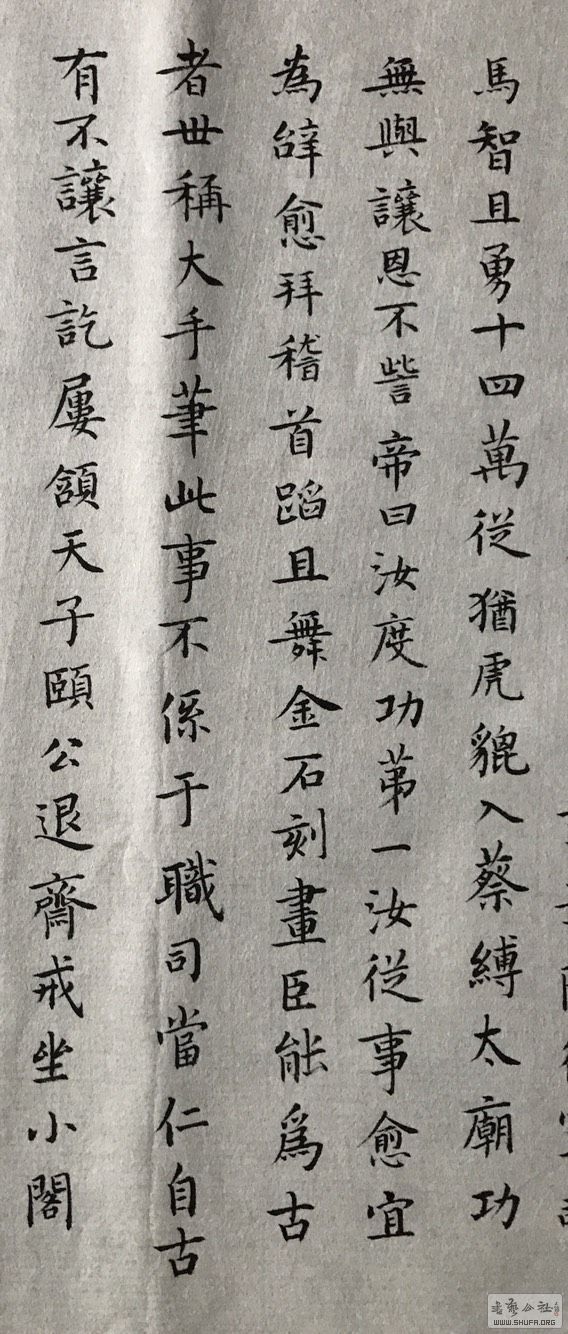 馬智且勇十四萬從猶虎貔入蔡縛太廟功
無與讓恩不訾帝曰汝度功苐一汝從事愈宜
為辝愈拜稽首蹈且舞金石刻畫臣能爲古
者世稱大手筆此事不係于職司當仁自古
有不讓言訖屢頷天子頤公退齋戒坐小閣
書藝公社
WWW.SHUFA.ORG